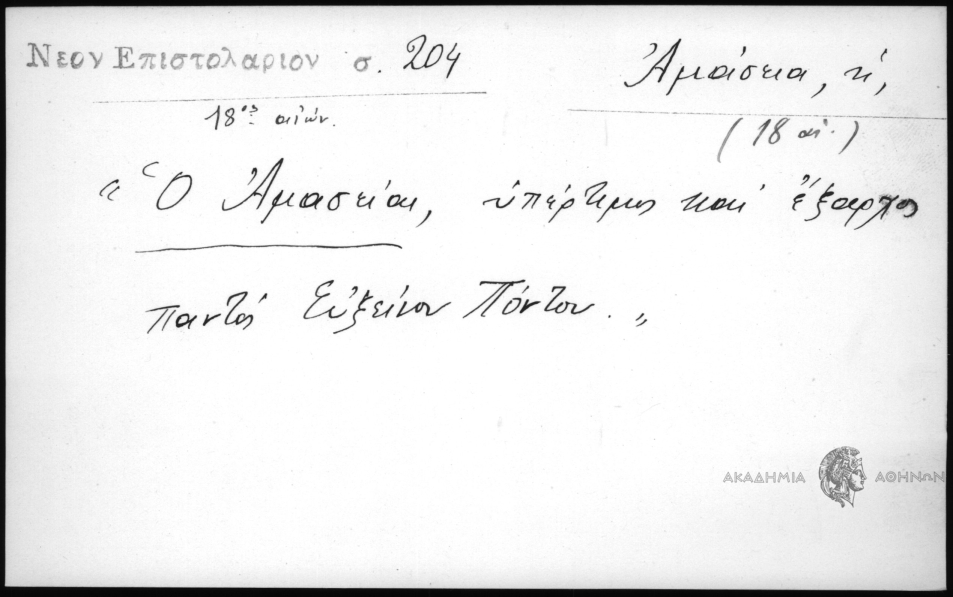 Νεον Επιστολαριον σ. 204
Ἀμάσεια, ἡ,
18ος αἰών.
(18 αἰ.)
« Ὁ Ἀμασείας, ὑπέρτιμος καὶ ἔξαρχος
παντὸς Εὐξείνου Πόντου. »
ΑΚΑΔΗΜΙΑ ΑΘΗΝΩΝ